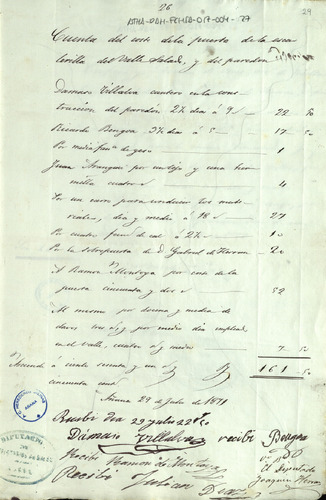 26
ATHA-DAH-FCHSA-017-004-27
29
Cuenta del coste de la puerta de la esca
lerilla del Valle Salado, y del paredon
Dámaso Villalva cantero en la cons
truccion del paredón 2½ dias á 9 r 22 50
Ricardo Bengoa 3½ dias á 5 17 50
Por media fan.ª de yeso 1
Juana Arangui por un tejo y una ter
nilla cuatro r 4
Por un carro para conducir los mate
riales, dia y medio á 18 r 27
Por cuatro fan.s de cal á 2½ r 10
Por la sobrepuerta de D Gabriel de Herran 20
A Ramon Montoya por coste de la
puerta cincuenta y dos r 52
Al mismo por docena y media de
clavos tres r, y por medio dia empleado
en el valle, cuatro r y medio 7 50
Asciende á ciento sesenta y un r 161 50
cincuenta cent
Añana 29 de Julio de 1871
Recibi dia 29 Julio 22 r 50
Dámaso Villalva recibí Bengoa
Recibí Ramon de Montoya
Vº Bº
El Diputado
Joaquin Herran
Recibo Julian
DIPUTACION